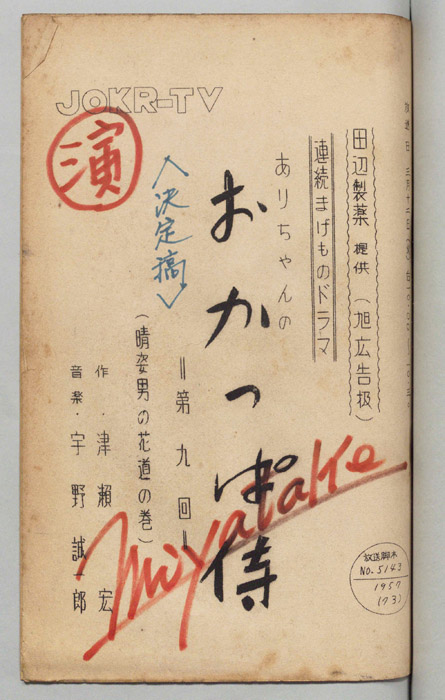 JOKR-TV
演
田辺製薬 提供 (旭広告扱)
連続まげものドラマ
ありちゃんの
おかっぱ侍
〈決定稿〉
=第九回=
(晴姿男の花道の巻)
作・津瀬 宏
音楽・宇野誠一郎
Miyatake
放送脚本
NO.5143
1957
(73)